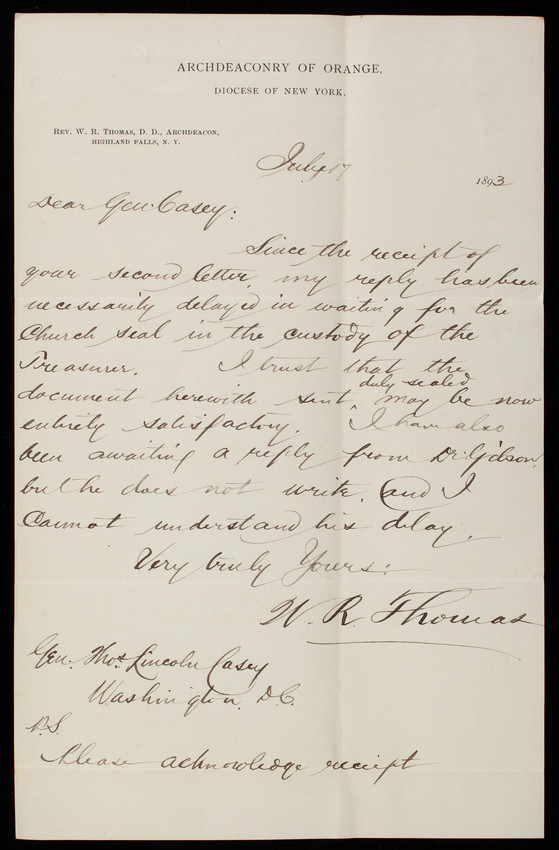 ARCHDEACONRY OF ORANGE,
DIOCESE OF NEW YORK.
REV. W. R. THOMAS, D. D., ARCHDEACON,
HIGHLAND FALLS, N. Y.
July 17 1893
Dear Gen. Casey:
Since the receipt of
your second letter, my reply has been
necessarily delayed in waiting for the
Church seal in the custody of the
Treasurer. I trust that the
duly sealed
document herewith sent, may be now
entirely satisfactory. I have also
been awaiting a reply from Dr. Gibson,
but he does not write, and I
cannot understand his delay.
Very truly Yours:
W. R. Thomas
Gen. Thos. Lincoln Casey
Washington, D.C.
P.S.
Please acknowledge receipt